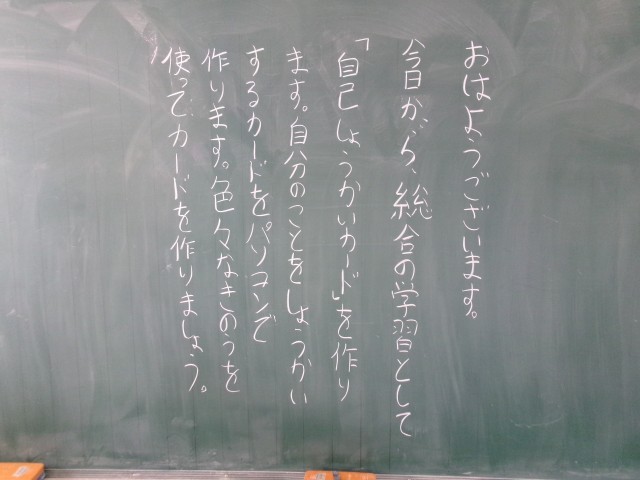 おはようございます。
今日から、総合の学習として
「自己しょうかいカード」を作り
ます。自分のことをしょうかい
するカードをパソコンで
作ります。色々なきのうを
使ってカードを作りましょう。